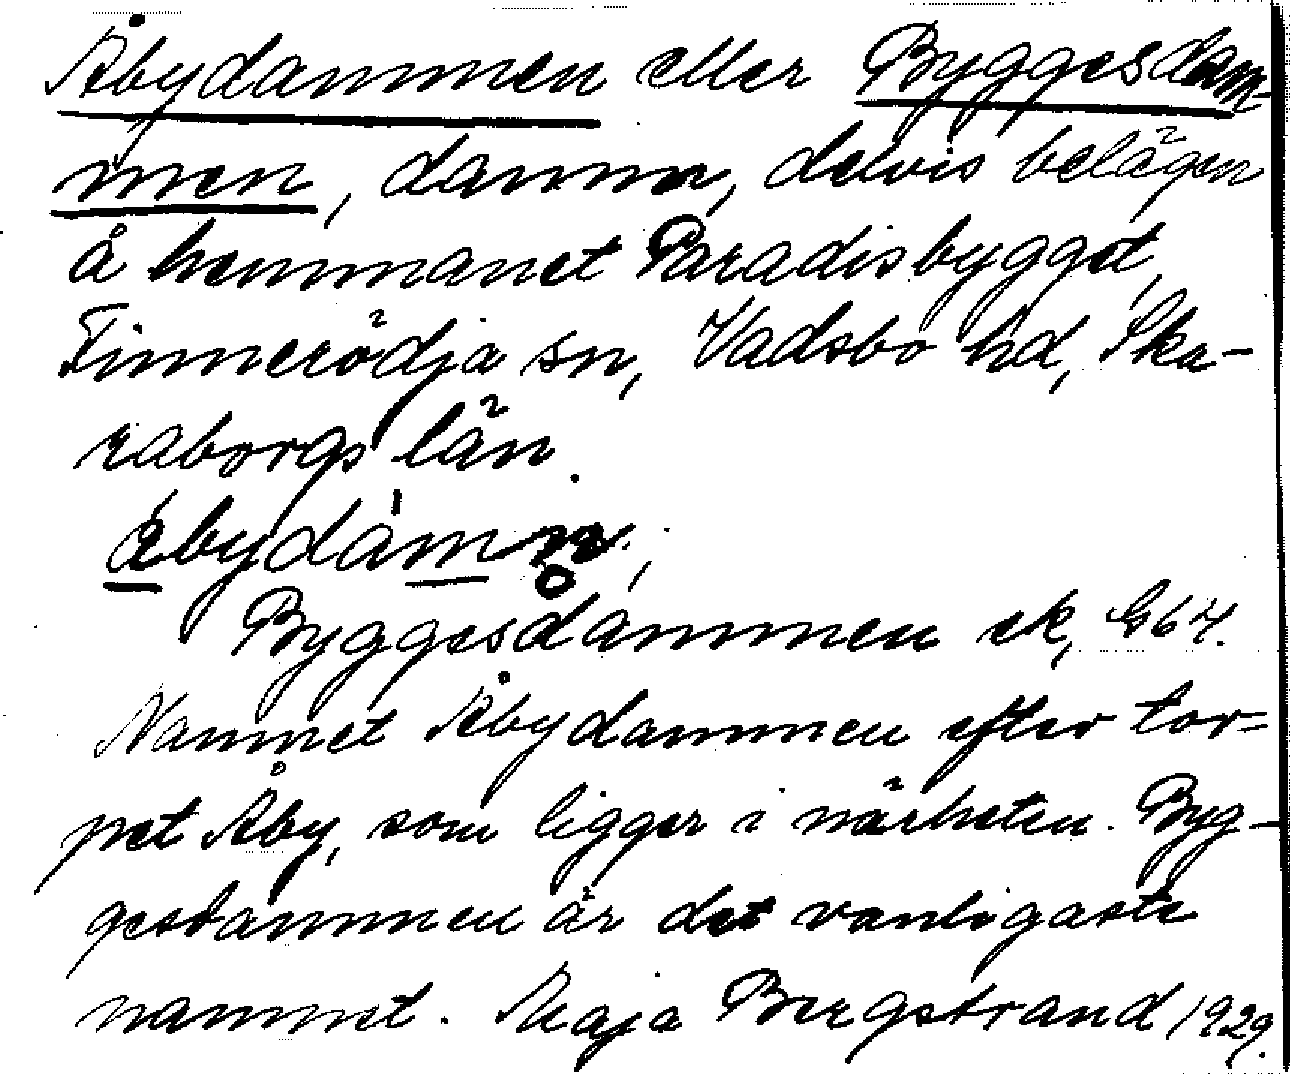 Åbydammen eller Byggesdam-
men, damm, delvis belägen
å hemmanet Paradisbygget,
Finnerödja sn, Vadsbo hd, Ska-
raborgs län.
Byggesdammen ek, G67.
Namnet Åbydammen efter tor-
pet Åby, som ligger i närheten. Byg-
gesdammen är det vanligaste
namnet. Maja Bergstrand 1929.